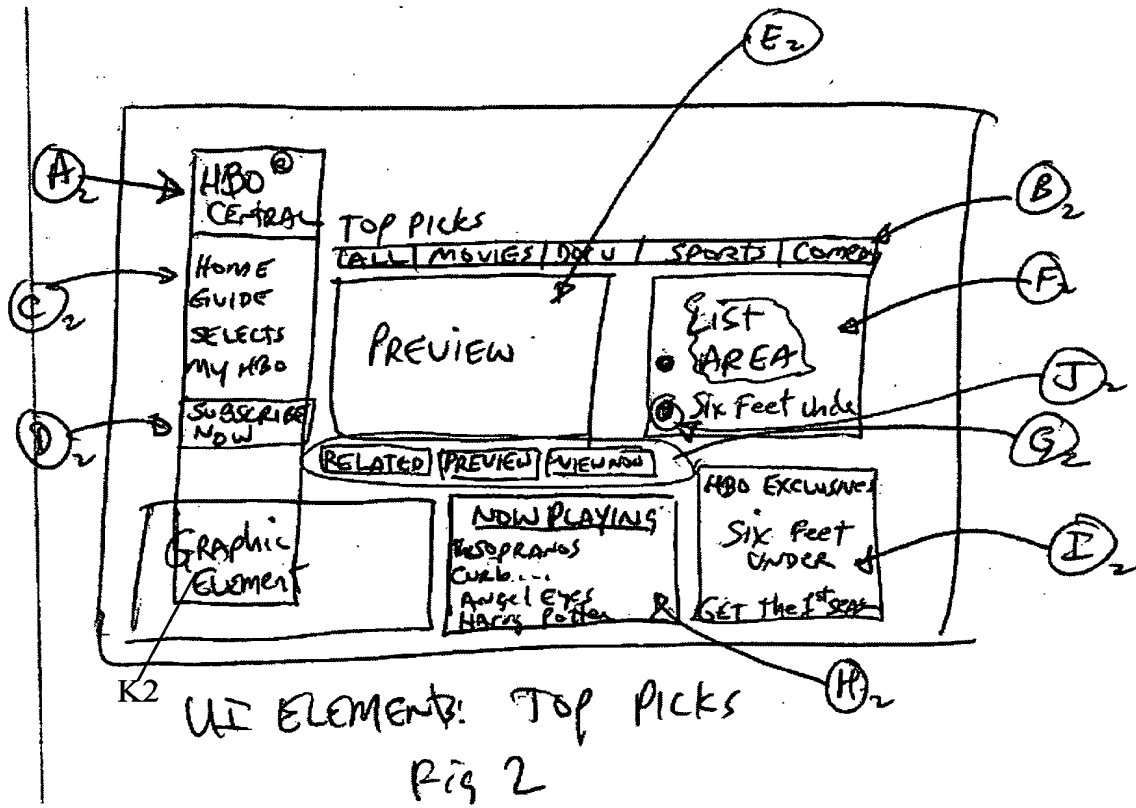 E2
A2
HBO
CENTRAL
B2
TOP PICKS
ALL | MOVIES | DOCU | SPORTS | COMEDY
C2
HOME
GUIDE
SELECTS
MY HBO
F2
PREVIEW
LIST
AREA
J2
D2
SUBSCRIBE
NOW
Six Feet Unde
G2
RELATED PREVIEW VIEW NOW
HBO EXCLUSIVES
SIX Feet
UNDER
GET the 1st SEAS
I2
GRAPHIC
ELEMENT
NOW PLAYING
SOPRANOS
CURB....
ANGEL EYES
HARRY Potter
K2
H2
UI ELEMENTS: TOP PICKS
Fig 2